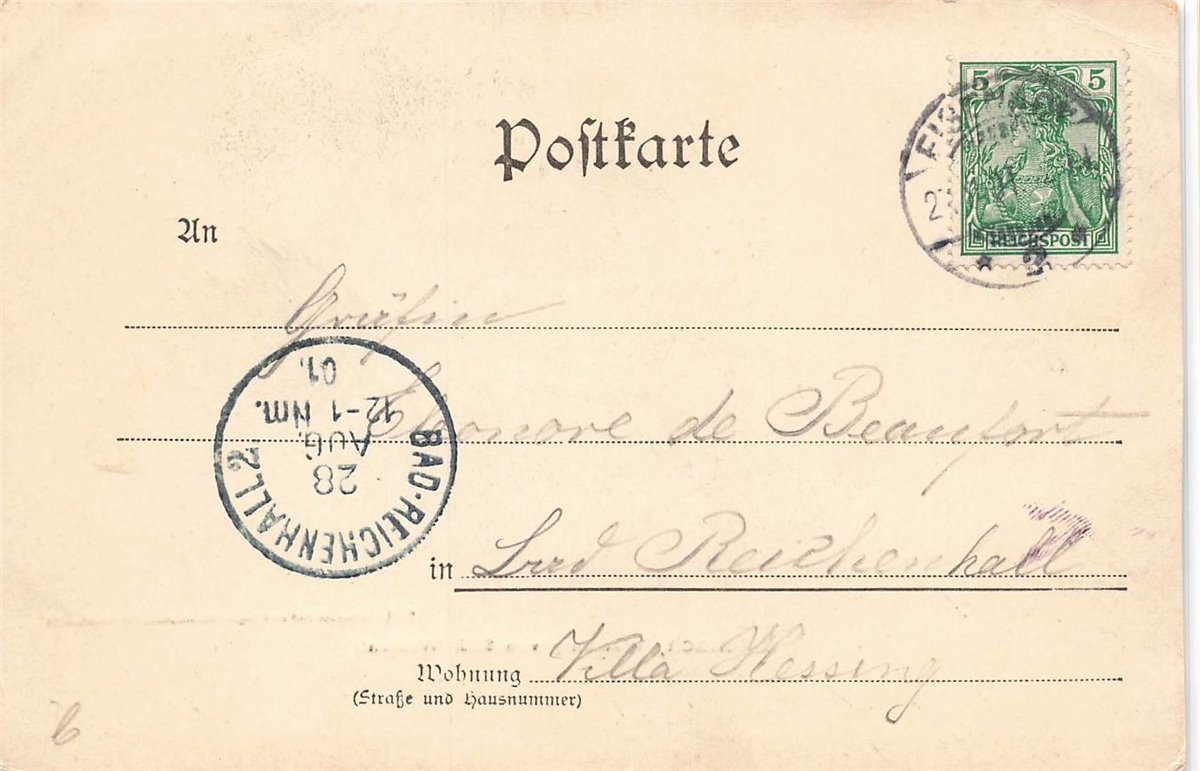 Postkarte
5 5
REICHSPOST
2
An
Gräfin
Eleonore de Beaufort
in Bad Reichenhall
Wohnung Villa Hessing
(Straße und Hausnummer)
BAD-REICHENHALL 2
28
AUG.
12-1 Nm.
01.